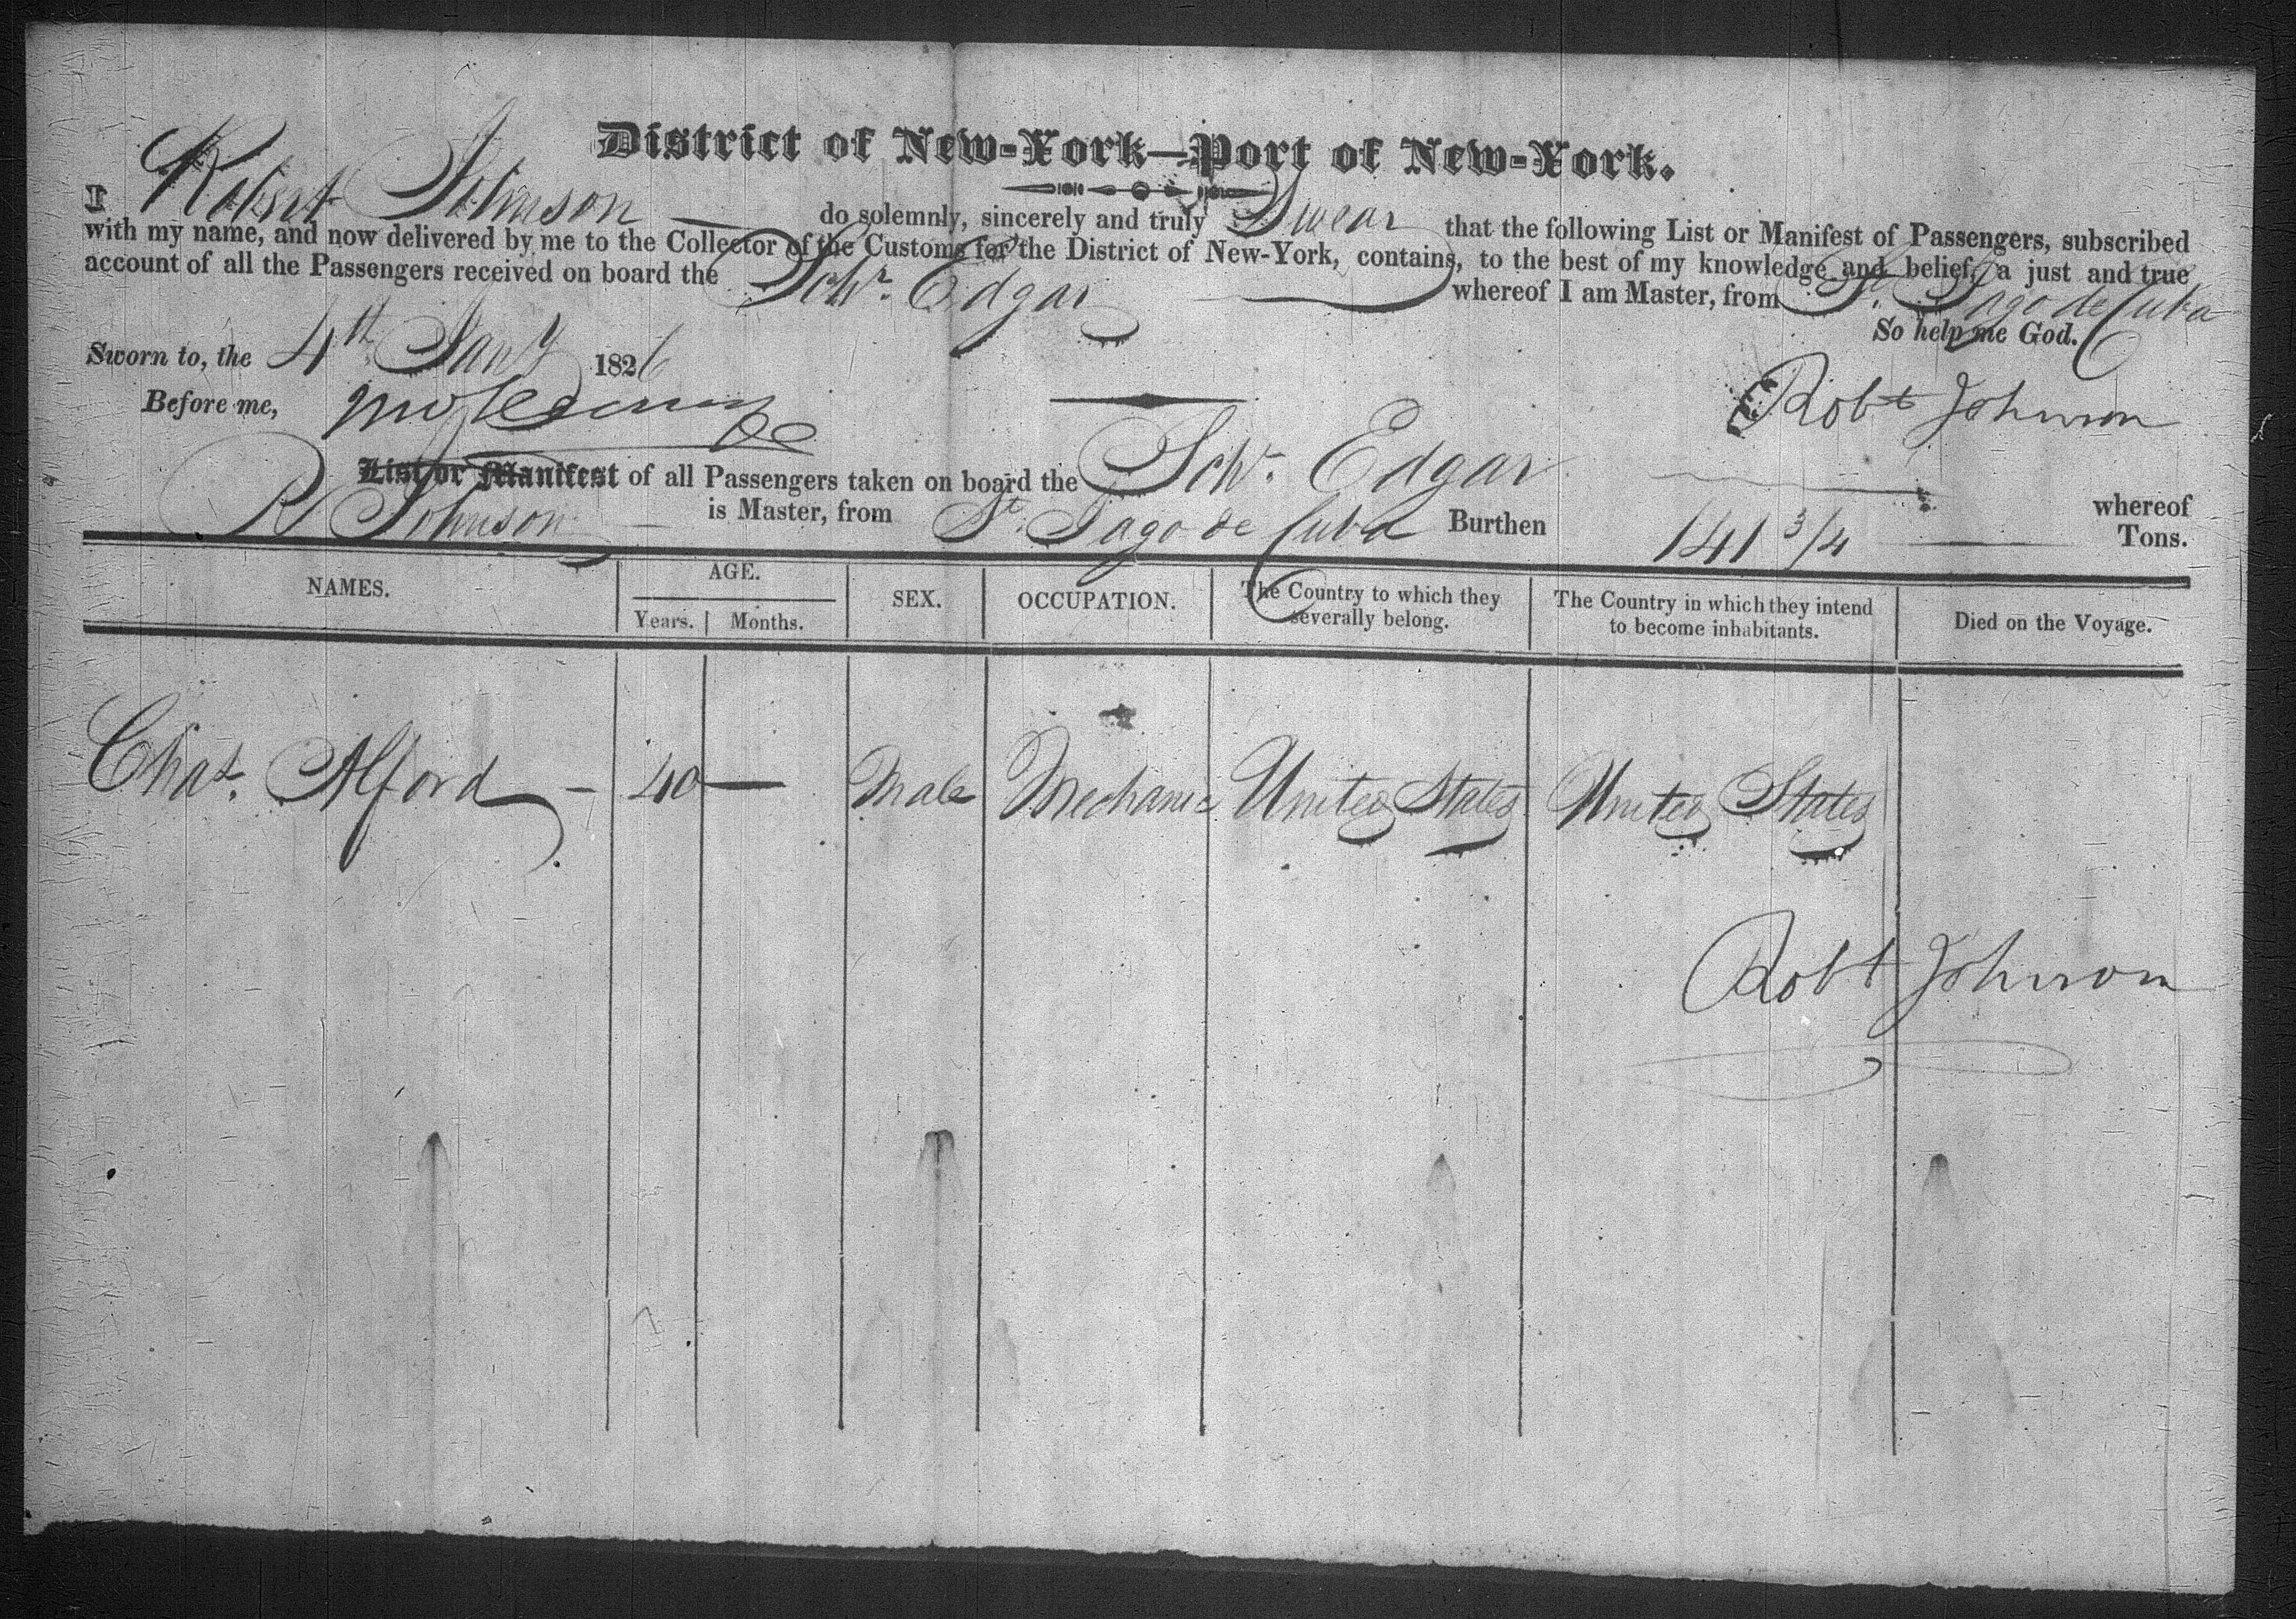 District of New-York—Port of New-York.
I Robert Johnson do solemnly, sincerely and truly Swear that the following List or Manifest of Passengers, subscribed
with my name, and now delivered by me to the Collector of the Customs for the District of New-York, contains, to the best of my knowledge and belief, a just and true
account of all the Passengers received on board the Schr. Edgar whereof I am Master, from St. Jago de Cuba
So help me God.
Sworn to, the 4th Jany 1826
Before me,
Robt Johnson
List or Manifest of all Passengers taken on board the Schr. Edgar whereof
R Johnson is Master, from St. Jago de Cuba Burthen 141 3/4 Tons.
NAMES. AGE. SEX. OCCUPATION. The Country to which they severally belong. The Country in which they intend to become inhabitants. Died on the Voyage.
Years. Months.
Chas. Alford — 40 — Male Mechanic United States United States
Robt Johnson